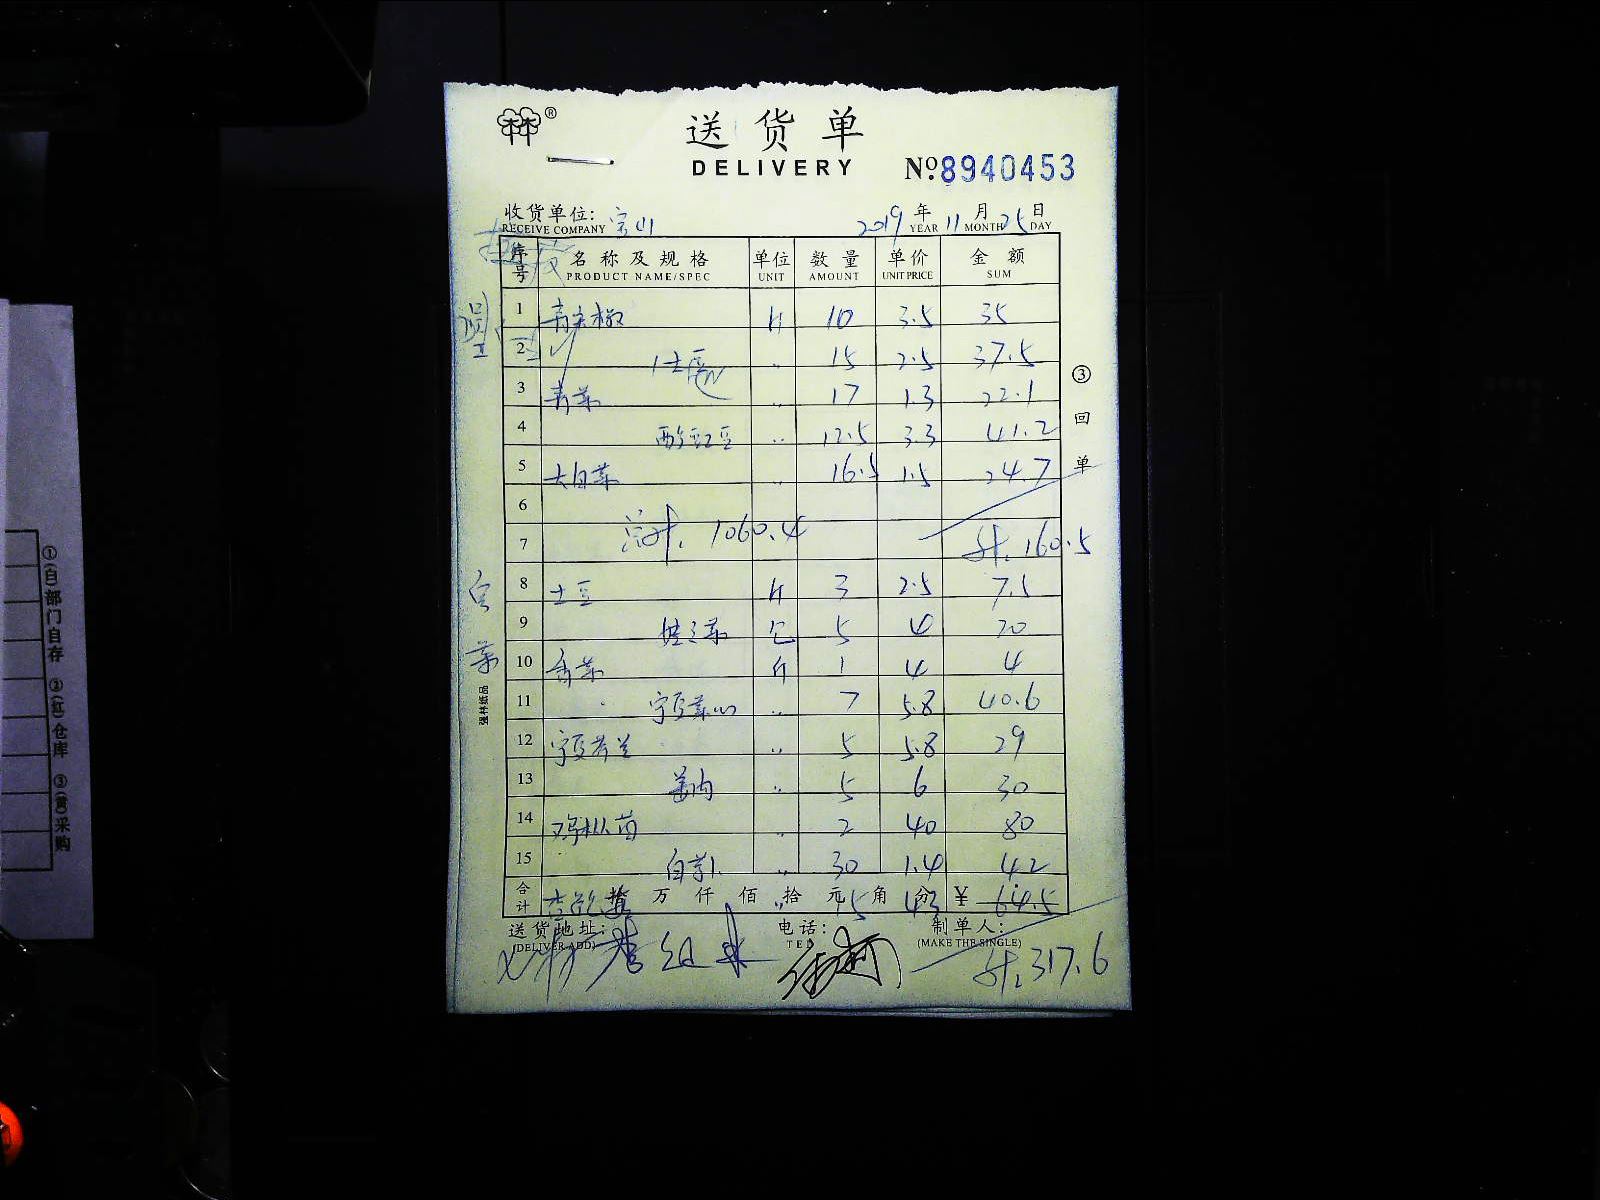 送货单
DELIVERY
№8940453
收货单位:
RECEIVE COMPANY
2019 年 11 月 25 日
YEAR MONTH DAY
序号 名称及规格 单位 数量 单价 金额
PRODUCT NAME/SPEC UNIT AMOUNT UNIT PRICE SUM
1 青尖椒 斤 10 3.5 35
2 15 2.5 37.5
3 青菜 17 1.3 22.1
4 酸豇豆 12.5 3.3 41.2
5 大白菜 16.5 1.5 24.7
6
总计. 1060.4
7 计. 160.5
8 土豆 斤 3 2.5 7.5
9 娃娃菜 包 5 4 20
10 香菜 斤 1 4 4
11 宁夏菜心 7 5.8 40.6
12 宁夏芥兰 5 5.8 29
13 姜肉 5 6 30
14 鸡枞菌 2 40 80
15 白萝卜 30 1.4 42
合计 万 仟 佰 拾 元 角 分 ¥ 64.5
15 4.3
送货地址: 电话: 制单人:
(DELIVER ADD) TEL (MAKE THE SINGLE)
计. 317.6
③
回
单
强林纸品
①(白)部门自存 ②(红)仓库 ③(黄)采购